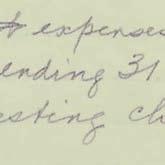 expenses
ending 31
esting ch